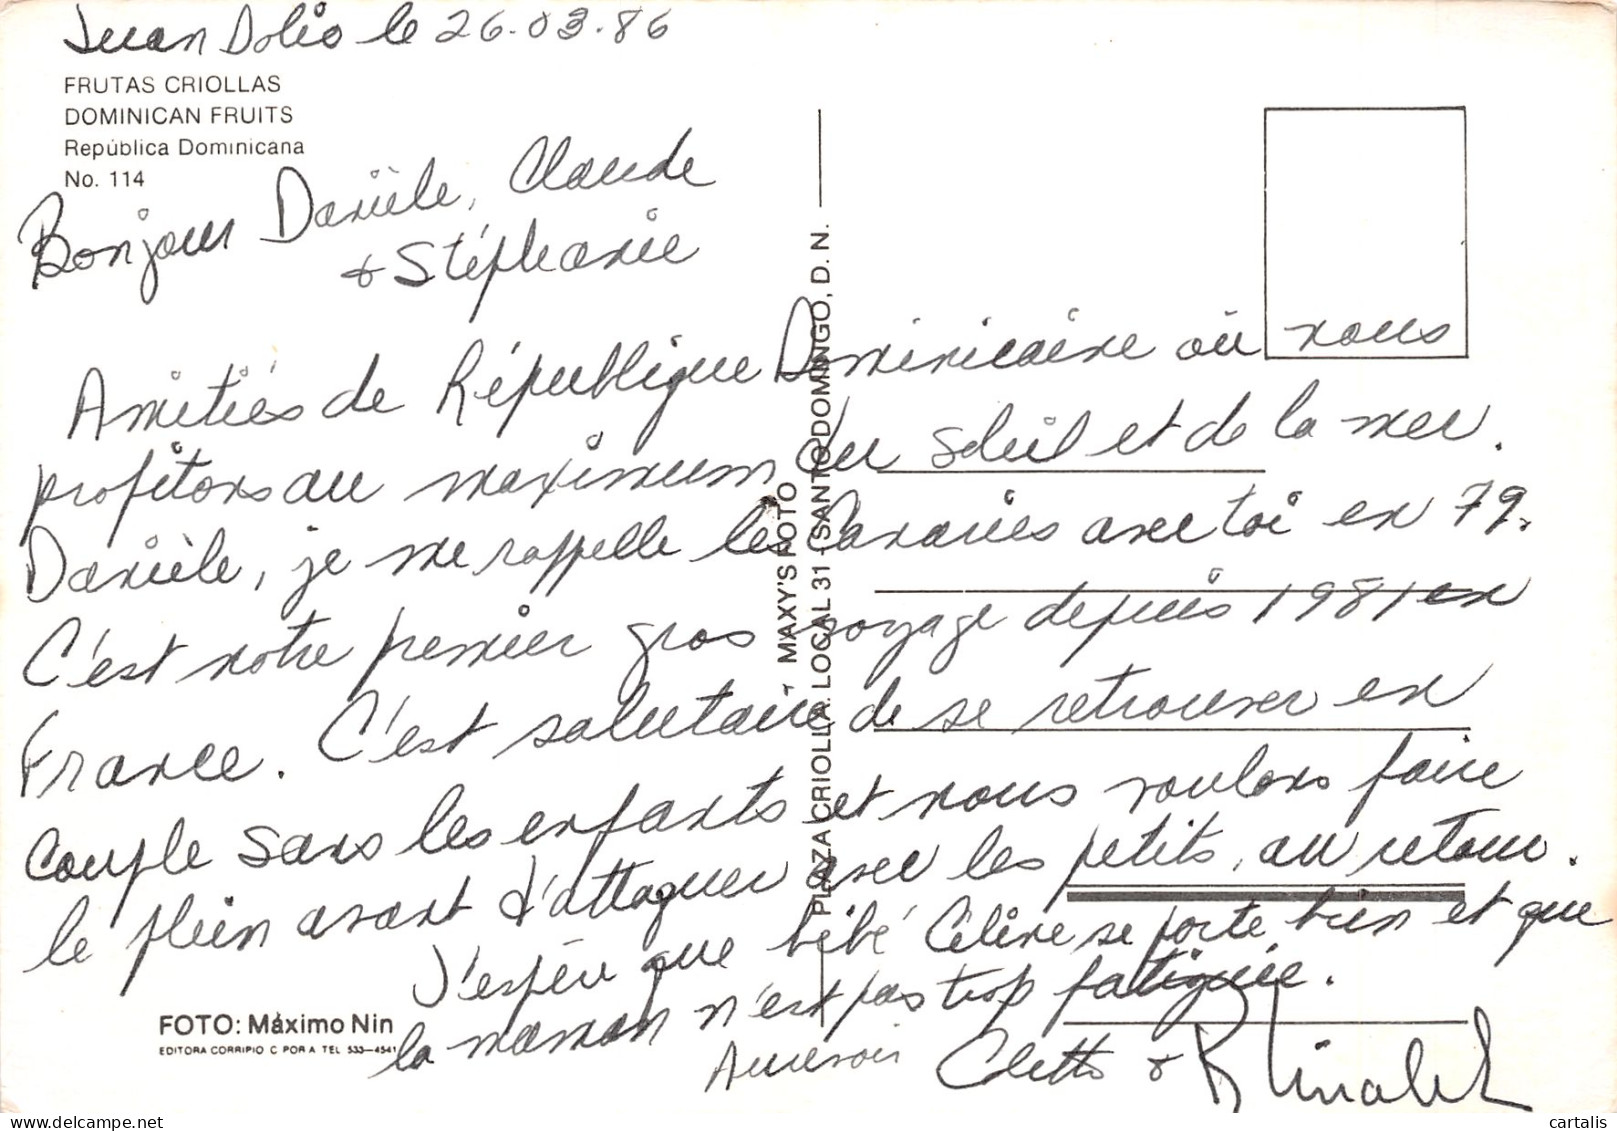 Juan Dolio le 26-03-86
FRUTAS CRIOLLAS
DOMINICAN FRUITS
República Dominicana
No. 114
Bonjour Danièle, Claude
& Stéphanie
Amitiés de République Dominicaine où nous
profitons au maximum du soleil et de la mer.
Danièle, je me rappelle les Canaries avec toi en 79.
C'est notre premier gros voyage depuis 1981 en
France. C'est salutaire de se retrouver en
couple sans les enfants et nous voulons faire
le plein avant d'attaquer avec les petits, au retour.
J'espère que bébé Céline se porte bien et que
la maman n'est pas trop fatiguée.
Aurevoir Colette &
MAXY'S FOTO
PLAZA CRIOLLA. LOCAL 31 - SANTO DOMINGO, D. N.
FOTO: Máximo Nin
EDITORA CORRIPIO C POR A TEL 533-4541
cartalis